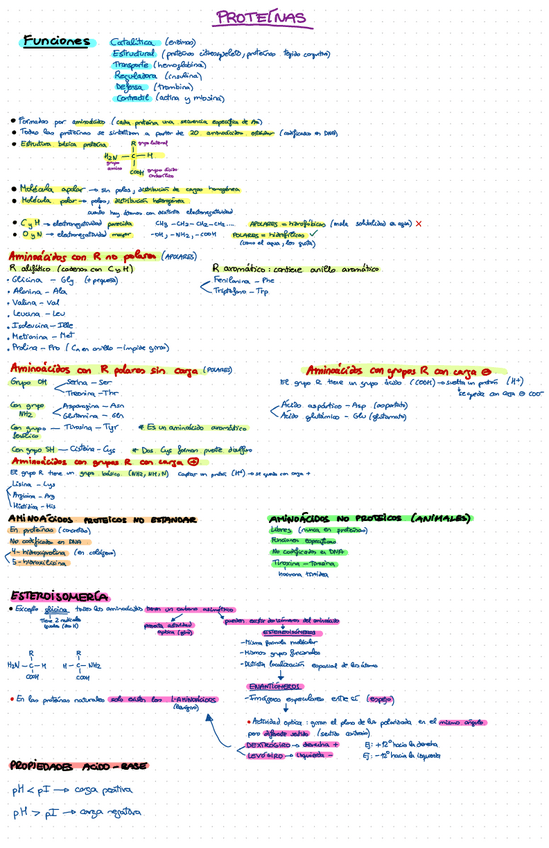 PROTEÍNAS
Funciones
Catalítica (enzimas)
Estructural (proteínas citoesqueleto, proteínas tejido conjuntivo)
Transporte (hemoglobina)
Reguladora (insulina)
Defensa (trombina)
Contráctil (actina y miosina)
• Formadas por aminoácidos (cada proteína una secuencia específica de Aa)
• Todas las proteínas se sintetizan a partir de 20 aminoácidos estándar (codificados en DNA)
• Estructura básica proteína
R grupo lateral
H₂N — C — H
grupo amino
COOH grupo ácido carboxílico
• Molécula apolar → sin polos, distribución de cargas homogénea
• Molécula polar → polos, distribución heterogénea
cuando hay átomos con distinta electronegatividad
• C y H → electronegatividad parecida CH₃ - CH₂ - CH₂ - CH₂.... APOLARES = hidrofóbicas (mala solubilidad en agua) ✗
• O y N → electronegatividad mayor -OH, -NH₂, -COOH POLARES = hidrofílicas ✓
(como el agua, les gusta)
Aminoácidos con R no polares (APOLARES)
R alifático (cadenas con C y H)
• Glicina - Gly (+ pequeño)
• Alanina - Ala
• Valina - Val
• Leucina - Leu
• Isoleucina - Ille
• Metionina - Met
• Prolina - Pro (Cα en anillo - impide giros)
R aromático: contiene anillo aromático
Fenilanina - Phe
Triptófano - Trp
Aminoácidos con R polares sin carga (POLARES)
Grupo OH
Serina - Ser
Treonina - Thr
Con grupo NH₂
Asparagina - Asn
Glutamina - Gln
Con grupo fenólico — Tirosina - Tyr * Es un aminoácido aromático
Con grupo SH — Cisteína - Cys * Dos Cys forman puente disulfuro
Aminoácidos con grupos R con carga ⊖
El grupo R tiene un grupo ácido (COOH) → suelta un protón (H⁺)
se queda con carga ⊖ COO⁻
Ácido aspártico - Asp (aspartato)
Ácido glutámico - Glu (glutamato)
Aminoácidos con grupos R con carga ⊕
El grupo R tiene un grupo básico (NH₂, NH, N) Captan un protón (H⁺) → se queda con carga +
Lisina - Lys
Arginina - Arg
Histidina - His
AMINOÁCIDOS PROTEICOS NO ESTANDAR
En proteínas (concretas)
No codificados en DNA
4-hidroxiprolina (en colágeno)
5-hidroxilisina
AMINOÁCIDOS NO PROTEICOS (ANIMALES)
Libres (nunca en proteínas)
Funciones específicas
No codificados en DNA
hormona tiroidea
ESTEROISOMERÍA
• Excepto glicina todos los aminoácidos tienen un carbono asimétrico
tiene 2 radicales iguales (dos H)
presenta actividad óptica (giro)
pueden existir
ESTEREOISÓMEROS
- Misma fórmula molecular
- Mismos grupos funcionales
- Distinta localización espacial de los átomos
R R
H₂N - C - H H - C - NH₂
COOH COOH
ENANTIÓMEROS
- Imágenes especulares entre sí (espejo)
• En las proteínas naturales solo existen los L-AMINOÁCIDOS
• Actividad óptica: giran el plano de luz polarizada en el mismo ángulo
pero diferente sentido (sentido contrario)
DEXTRÓGIRO → derecha + Ej: +12° hacia la derecha
LEVÓGIRO → izquierda - Ej: -12° hacia la izquierda
PROPIEDADES ACIDO-BASE
pH < pI → carga positiva
pH > pI → carga negativa